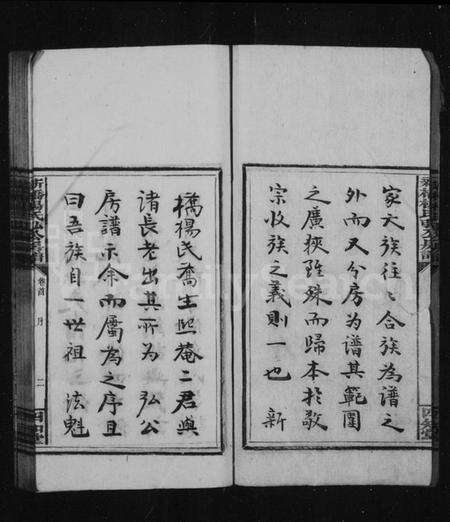 家大族往〻合族為譜之
外而又分房為譜其範圍
之廣狹雖殊而歸本於敬
宗收族之義則一也新
橋楊氏喬生熙菴二君與
諸長老出其所為弘公
房譜示余而屬為之序且
曰吾族自一世祖法魁
卷首
二
FamilySearch